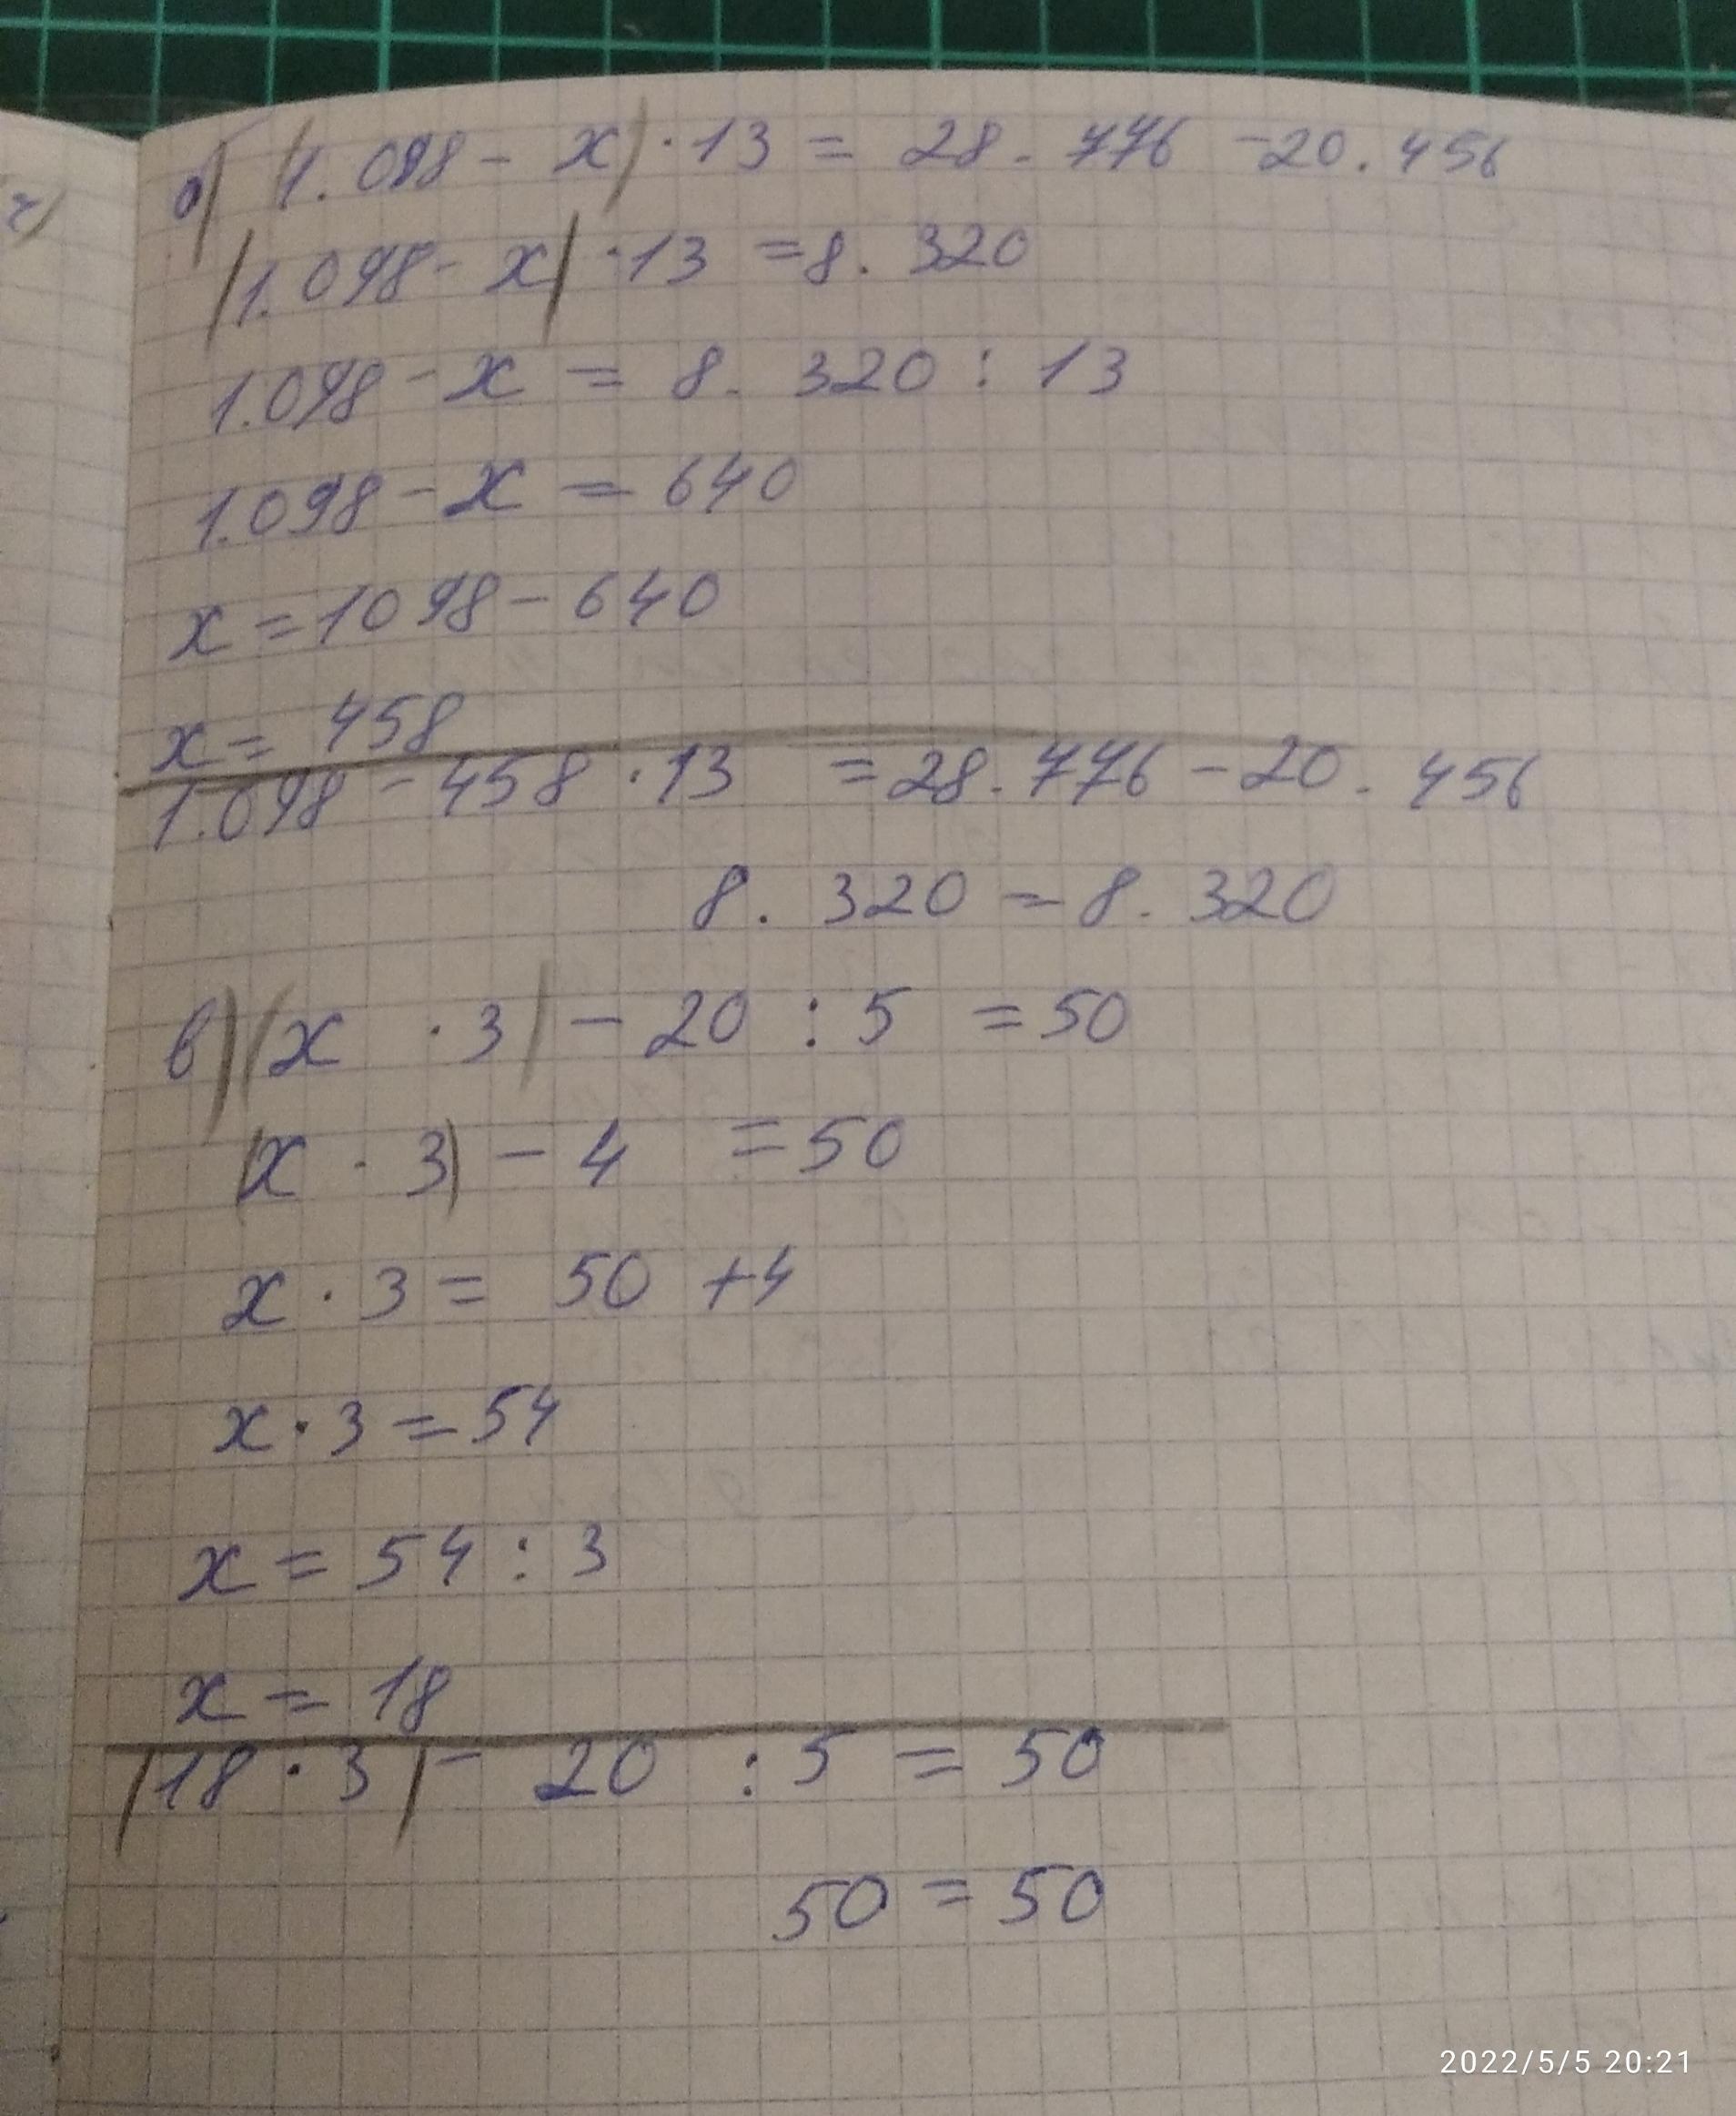 г)
б) (1.098 - x) · 13 = 28.776 - 20.456
(1.098 - x) · 13 = 8.320
1.098 - x = 8.320 : 13
1.098 - x = 640
x = 1098 - 640
x = 458
1.098 - 458 · 13 = 28.776 - 20.456
8.320 = 8.320
в) (x · 3) - 20 : 5 = 50
(x · 3) - 4 = 50
x · 3 = 50 + 4
x · 3 = 54
x = 54 : 3
x = 18
(18 · 3) - 20 : 5 = 50
50 = 50
2022/5/5 20:21